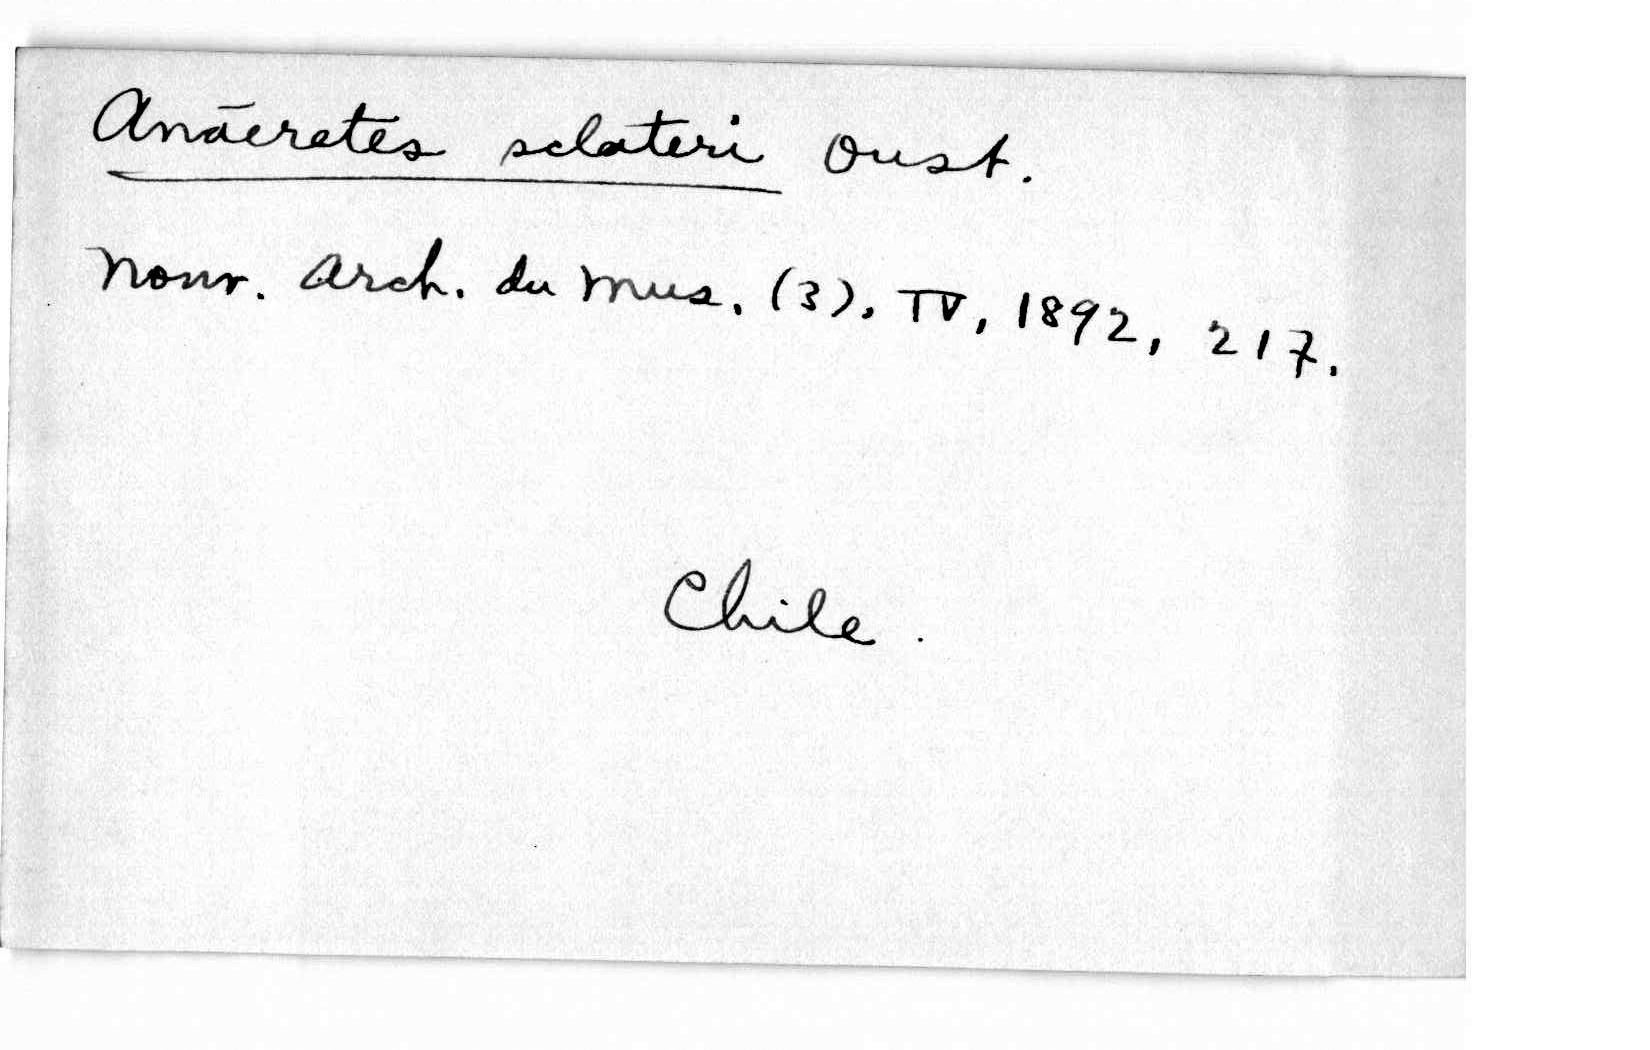 Anāeretes sclateri Oust.
Nouv. Arch. du Mus. (3), IV, 1892, 217.
Chile.